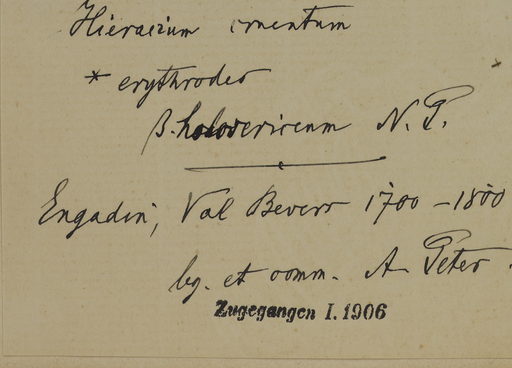 Hieracium cruentum
* erythrodes
β. holosericeum N. P.
Engadin, Val Bevers 1700 - 1800
leg. et comm. A. Peter.
Zugegangen I. 1906